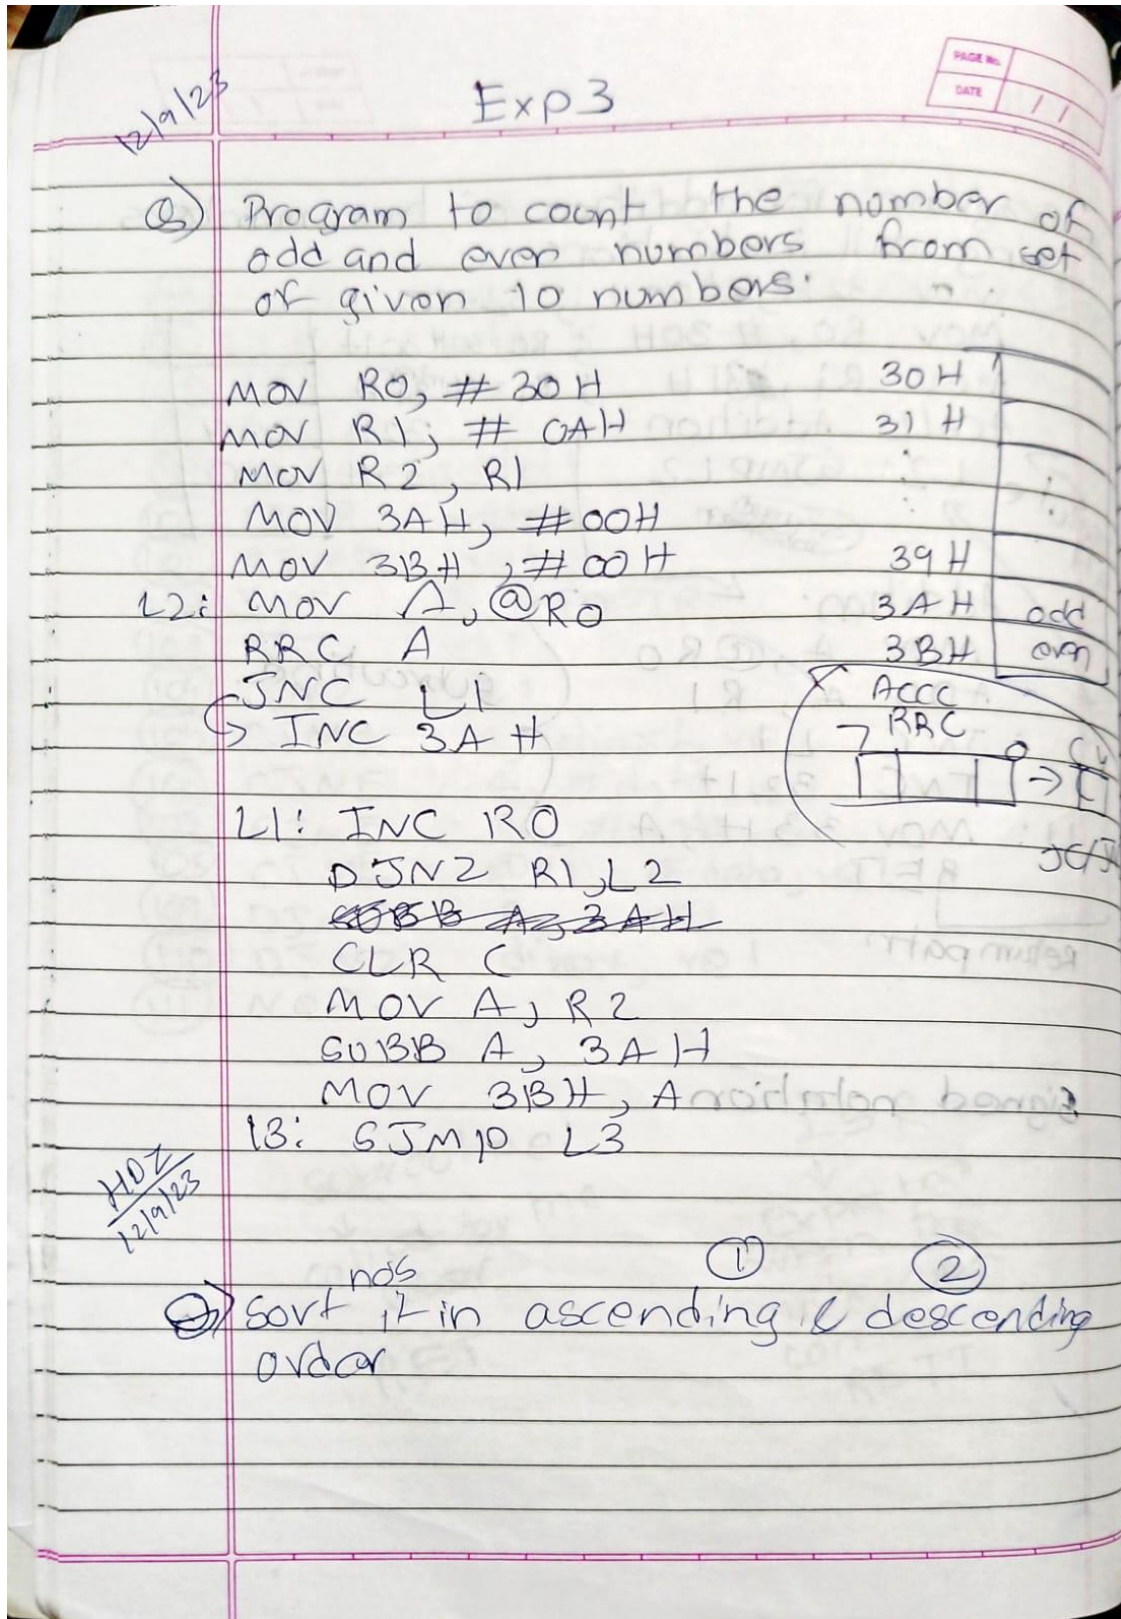 PAGE No.
DATE / /
12/9/23
Exp 3
Q) Program to count the number of
odd and even numbers from set
of given 10 numbers.
MOV R0, #30H
MOV R1, #0AH
MOV R2, R1
MOV 3AH, #00H
MOV 3BH, #00H
L2: MOV A, @R0
RRC A
JNC L1
INC 3AH
L1: INC R0
DJNZ R1, L2
SUBB A, 3AH
CLR C
MOV A, R2
SUBB A, 3AH
MOV 3BH, A
L3: SJMP L3
30H
31H
39H
3AH odd
3BH even
ACCC
RRC
7 0 Cy
12/9/23
① ②
nos
Q) Sort it in ascending & descending
order